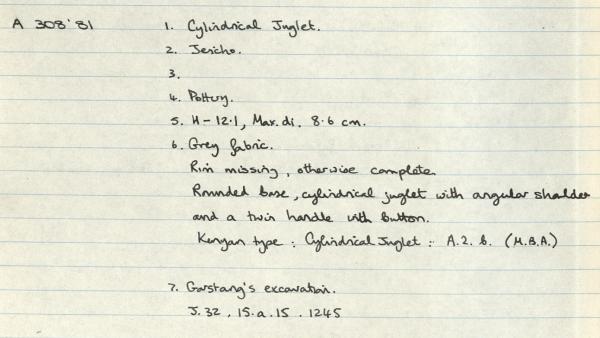 A 308'81 1. Cylindrical Juglet.
2. Jericho.
3.
4. Pottery.
5. H - 12.1, Max. di. 8.6 cm.
6. Grey fabric.
Rim missing, otherwise complete
Rounded base, cylindrical juglet with angular shoulder
and a twin handle with button.
Kenyan type : Cylindrical Juglet : A.2.b. (M.B.A.)
7. Garstang's excavation.
J.32 . 15.a.15 . 1245